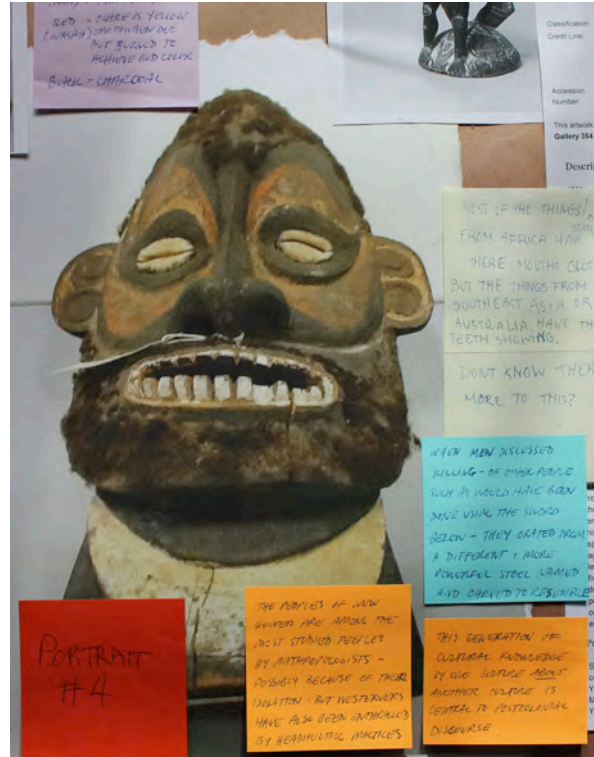 RED = OCHRE IS YELLOW
(WASAH) EARTHEN DUG
BUT BURNED TO
ACHIEVE RED COLOR
BLACK = CHARCOAL
Classification
Credit Line:
Accession
Number
This artwork
Gallery 354
Descri
MOST OF THE THINGS/
FROM AFRICA HAVE
THERE MOUTHS CLOS
BUT THE THINGS FROM
SOUTHEAST ASIA OR
AUSTRALIA HAVE TH
TEETH SHOWING.
DONT KNOW
MORE TO THIS?
WHEN MEN DISCUSSED
KILLING - OF OTHER PEOPLE
SUCH AS WOULD HAVE BEEN
DONE USING THE SWORD
BELOW - THEY ORATED FROM
A DIFFERENT + MORE
POWERFUL STOOL NAMED
AND CARVED TO RESEMBLE
PORTRAIT
#4
THE PEOPLES OF NEW
GUINEA ARE AMONG THE
MOST STUDIED PEOPLES
BY ANTHROPOLOGISTS -
POSSIBLY BECAUSE OF THEIR
ISOLATION - BUT WESTERNERS
HAVE ALSO BEEN ENTHRALLED
BY HEADHUNTING PRACTICES
THIS GENERATION OF
CULTURAL KNOWLEDGE
BY ONE CULTURE ABOUT
ANOTHER CULTURE IS
CENTRAL TO POSTCOLONIAL
DISCOURSE